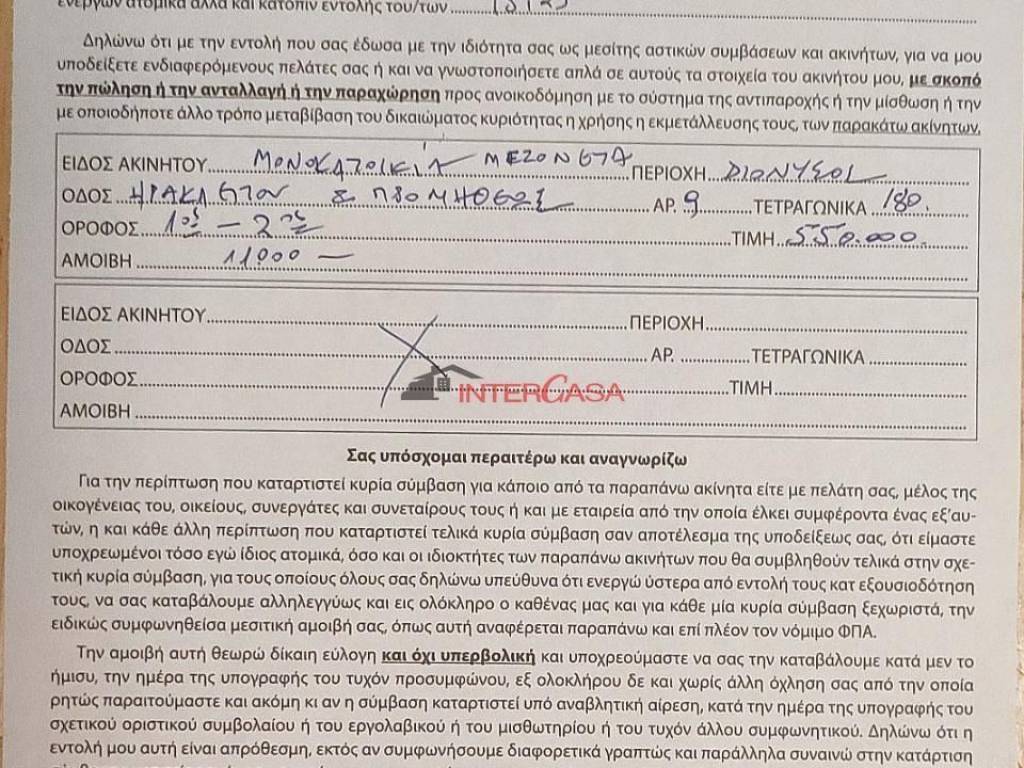 ενεργών ατομικά αλλά και κατόπιν εντολής του/των
Δηλώνω ότι με την εντολή που σας έδωσα με την ιδιότητα σας ως μεσίτης αστικών συμβάσεων και ακινήτων, για να μου
υποδείξετε ενδιαφερόμενους πελάτες σας ή και να γνωστοποιήσετε απλά σε αυτούς τα στοιχεία του ακινήτου μου, με σκοπό
την πώληση ή την ανταλλαγή ή την παραχώρηση προς ανοικοδόμηση με το σύστημα της αντιπαροχής ή την μίσθωση ή την
με οποιοδήποτε άλλο τρόπο μεταβίβαση του δικαιώματος κυριότητας η χρήσης η εκμετάλλευσης τους, των παρακάτω ακίνητων,
ΕΙΔΟΣ ΑΚΙΝΗΤΟΥ ΜΟΝΟΚΑΤΟΙΚΙΑ ΜΕΖΟΝΕΤΑ ΠΕΡΙΟΧΗ ΔΙΟΝΥΣΟΣ
ΟΔΟΣ ΗΡΑΚΛΕΙΤΟΥ & ΠΡΟΜΗΘΕΩΣ ΑΡ. 9 ΤΕΤΡΑΓΩΝΙΚΑ 180.
ΟΡΟΦΟΣ 1ος - 2ος ΤΙΜΗ 550.000.
ΑΜΟΙΒΗ 11000 -
ΕΙΔΟΣ ΑΚΙΝΗΤΟΥ ΠΕΡΙΟΧΗ
ΟΔΟΣ ΑΡ. ΤΕΤΡΑΓΩΝΙΚΑ
ΟΡΟΦΟΣ ΤΙΜΗ
INTERCASA
ΑΜΟΙΒΗ
Σας υπόσχομαι περαιτέρω και αναγνωρίζω
Για την περίπτωση που καταρτιστεί κυρία σύμβαση για κάποιο από τα παραπάνω ακίνητα είτε με πελάτη σας, μέλος της
οικογένειας του, οικείους, συνεργάτες και συνεταίρους τους ή και με εταιρεία από την οποία έλκει συμφέροντα ένας εξ'αυ-
τών, η και κάθε άλλη περίπτωση που καταρτιστεί τελικά κυρία σύμβαση σαν αποτέλεσμα της υποδείξεως σας, ότι είμαστε
υποχρεωμένοι τόσο εγώ ίδιος ατομικά, όσο και οι ιδιοκτήτες των παραπάνω ακινήτων που θα συμβληθούν τελικά στην σχε-
τική κυρία σύμβαση, για τους οποίους όλους σας δηλώνω υπεύθυνα ότι ενεργώ ύστερα από εντολή τους κατ εξουσιοδότηση
τους, να σας καταβάλουμε αλληλεγγύως και εις ολόκληρο ο καθένας μας και για κάθε μία κυρία σύμβαση ξεχωριστά, την
ειδικώς συμφωνηθείσα μεσιτική αμοιβή σας, όπως αυτή αναφέρεται παραπάνω και επί πλέον τον νόμιμο ΦΠΑ.
Την αμοιβή αυτή θεωρώ δίκαιη εύλογη και όχι υπερβολική και υποχρεούμαστε να σας την καταβάλουμε κατά μεν το
ήμισυ, την ημέρα της υπογραφής του τυχόν προσυμφώνου, εξ ολοκλήρου δε και χωρίς άλλη όχληση σας από την οποία
ρητώς παραιτούμαστε και ακόμη κι αν η σύμβαση καταρτιστεί υπό αναβλητική αίρεση, κατά την ημέρα της υπογραφής του
σχετικού οριστικού συμβολαίου ή του εργολαβικού ή του μισθωτηρίου ή του τυχόν άλλου συμφωνητικού. Δηλώνω ότι η
εντολή μου αυτή είναι απρόθεσμη, εκτός αν συμφωνήσουμε διαφορετικά γραπτώς και παράλληλα συναινώ στην κατάρτιση